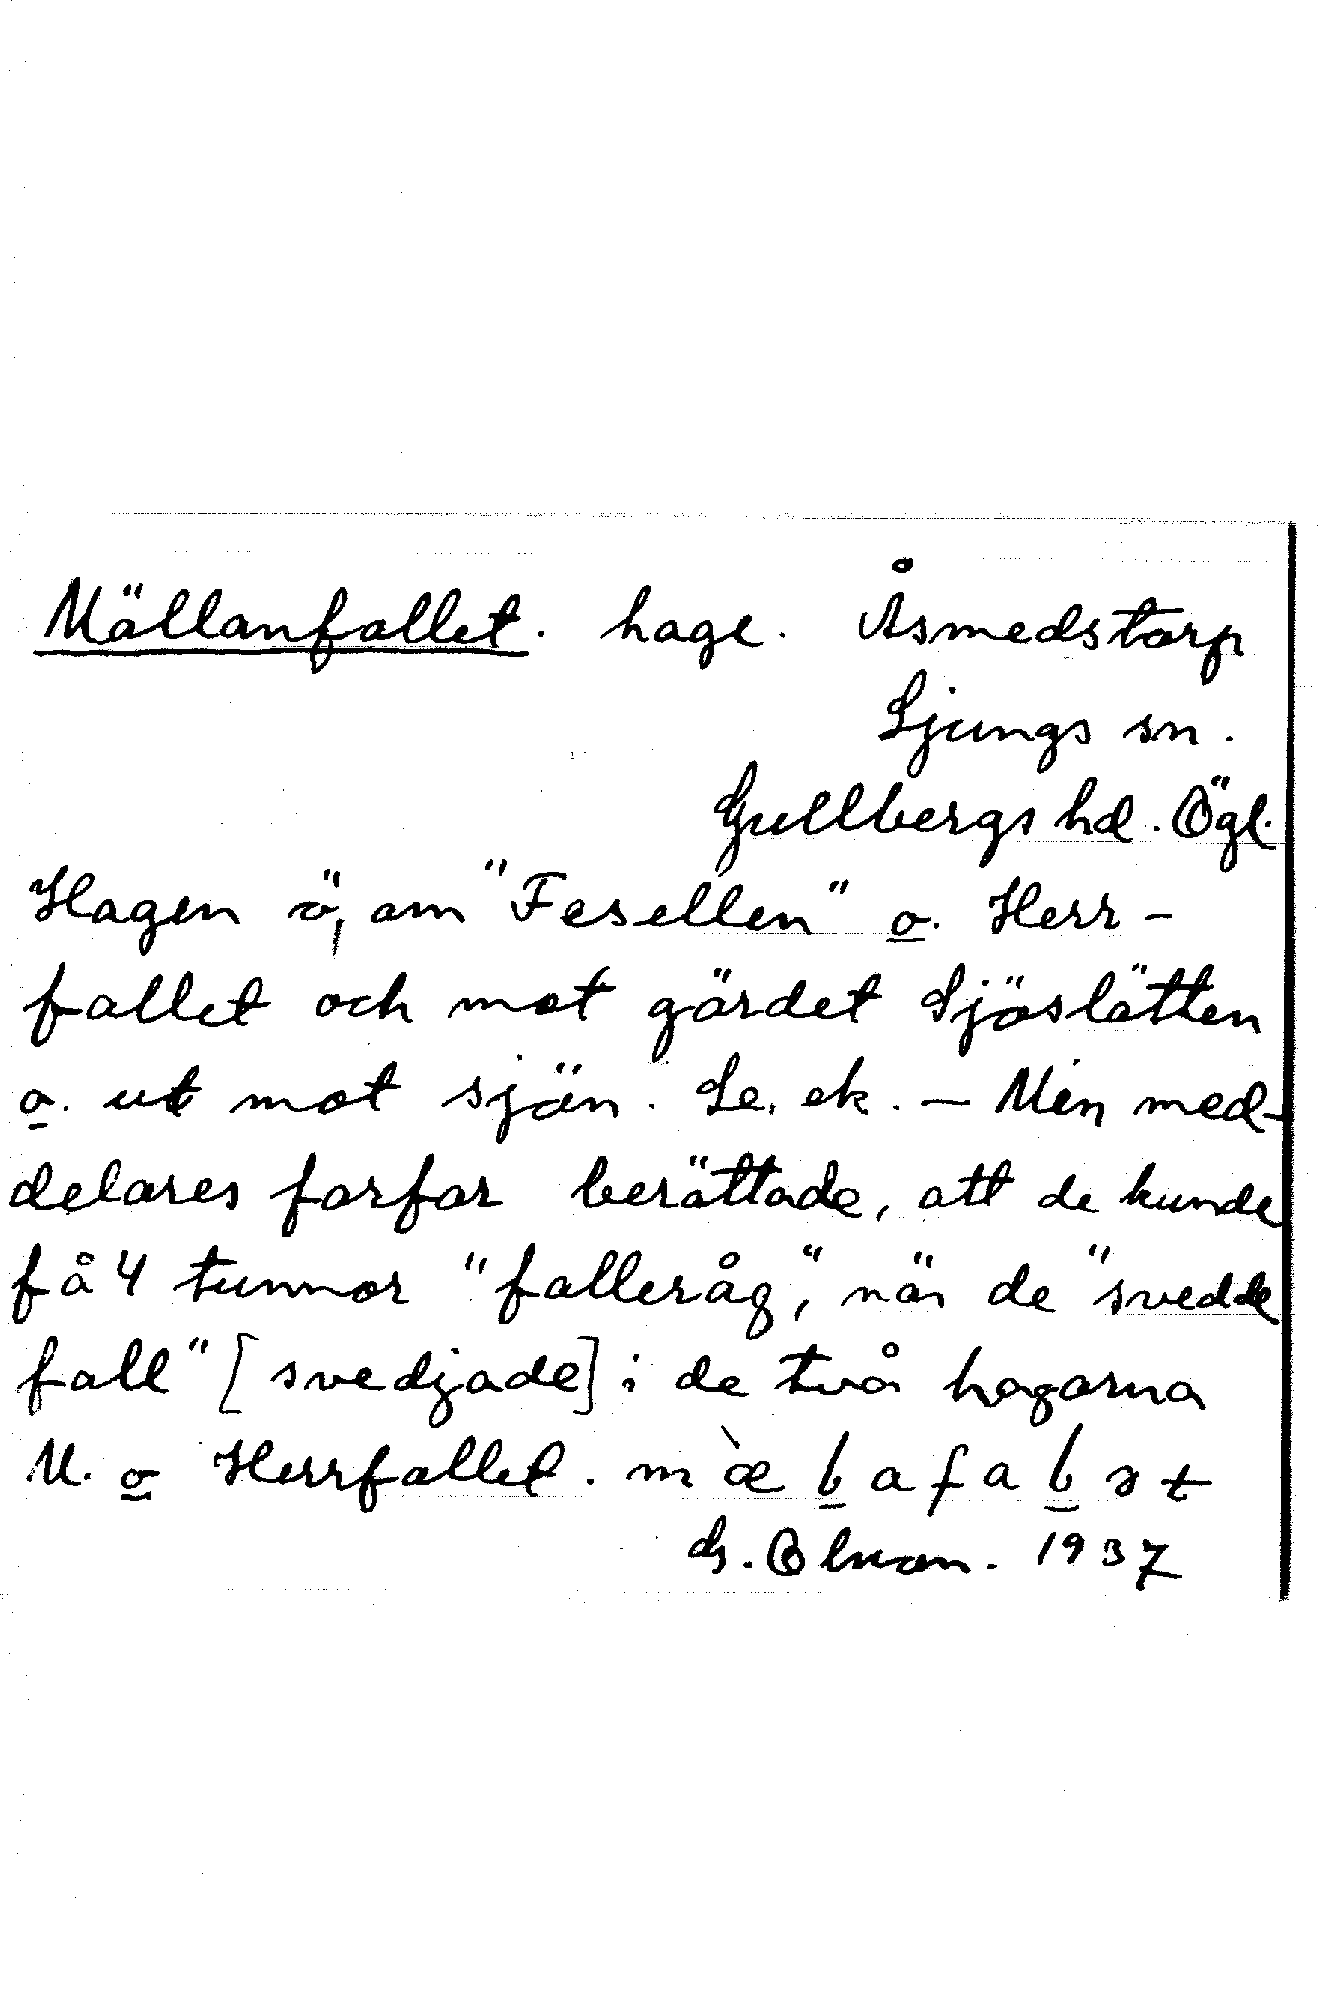 Mällanfallet. hage. Åsmedstorp
Ljungs sn.
Gullbergs hd. Ögl.
Hagen ö, om "Fesellen" o. Herr-
fallet och mot gärdet Sjöslätten
o. ut mot sjön. Le, ek. — Min med-
delares farfar berättade, att de kunde
få 4 tunnor "falleråg", när de "svedde
fall" [svedjade] i de två hagarna
M. o Herrfallet. m æ̀ b a f a b ə t
G. 1937